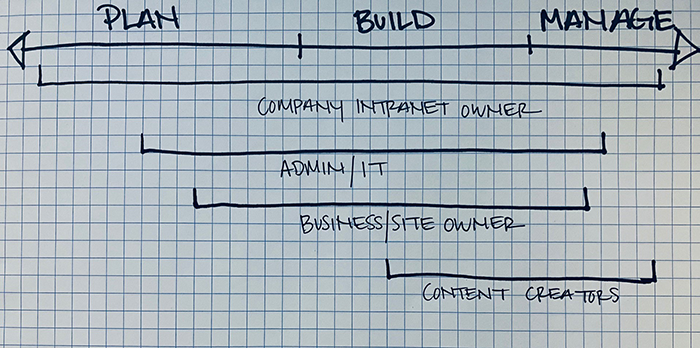 PLAN BUILD MANAGE
COMPANY INTRANET OWNER
ADMIN/IT
BUSINESS/SITE OWNER
CONTENT CREATORS